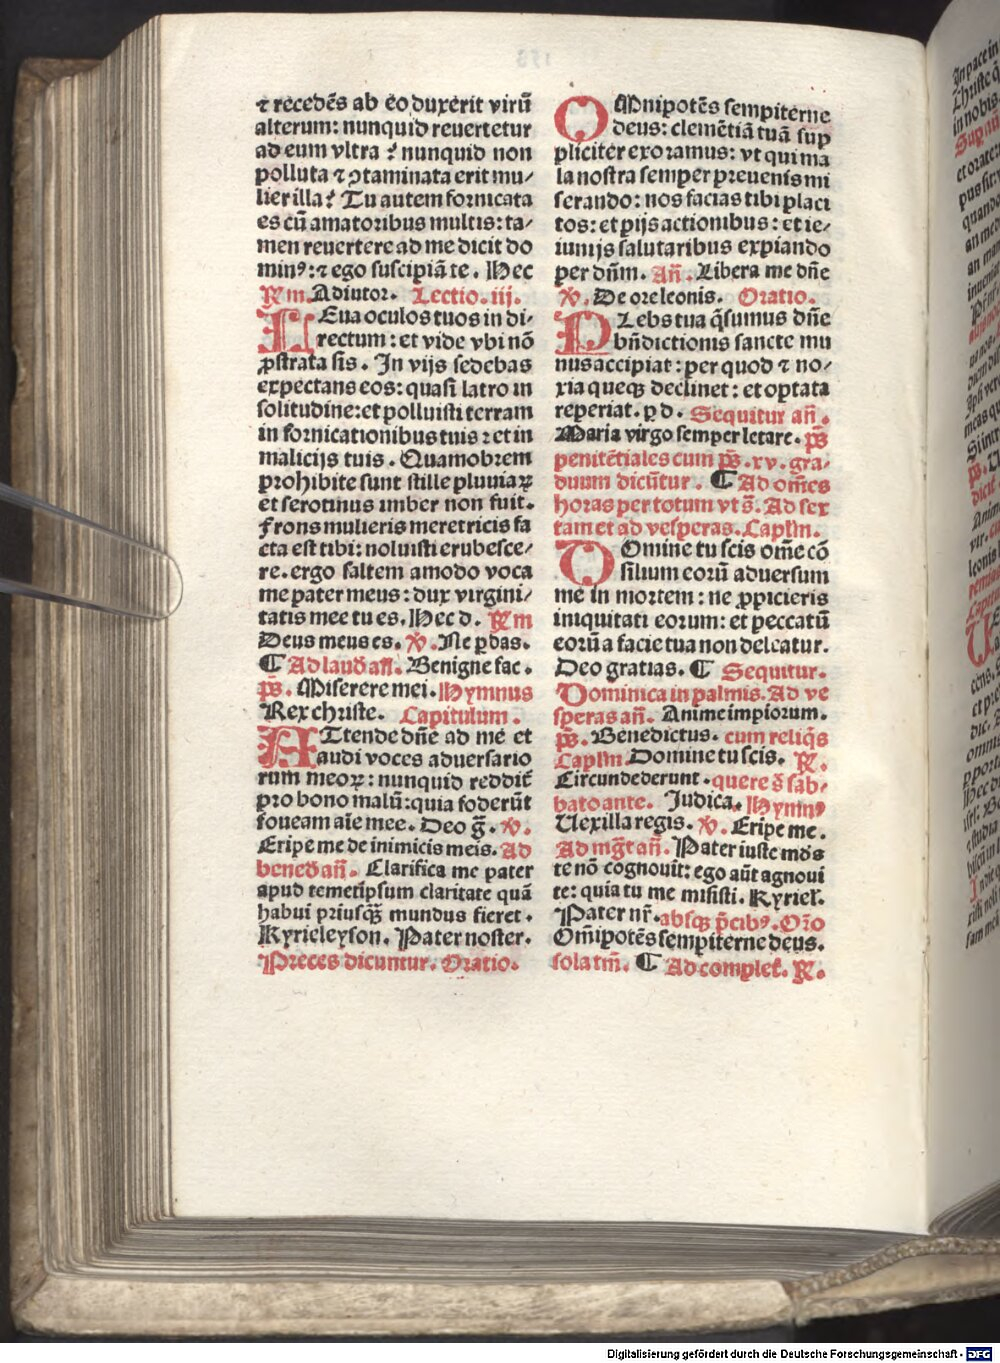 ⁊ recedēs ab eo duxerit virū
alterum: nunquid reuertetur
ad eum vltra? nunquid non
polluta ⁊ ꝯtaminata erit mu⸗
lier illa? Tu autem fornicata
es cū amatoribus multis: ta⸗
men reuertere ad me dicit do
minꝰ: ⁊ ego suscipiā te. Hec
℟m. Adiutor. Lectio. iij.
LEua oculos tuos in di⸗
rectum: et vide vbi nō
ꝓstrata sis. In vijs sedebas
expectans eos: quasi latro in
solitudine: et polluisti terram
in fornicationibus tuis: et in
malicijs tuis. Quamobrem
prohibite sunt stille pluuiaꝝ
et serotinus imber non fuit.
Frons mulieris meretricis fa
cta est tibi: noluisti erubesce⸗
re. ergo saltem amodo voca
me pater meus: dux virgini⸗
tatis mee tu es. Hec d. ℟m
Deus meus es. ℣. Ne ꝑdas.
¶ Ad laud̄ añ. Benigne fac.
p̄s. Miserere mei. Hymnus
Rex christe. Capitulum.
ATtende dn̄e ad me et
audi voces aduersario
rum meoꝝ: nunquid reddit̄
pro bono malū: quia foderūt
foueam aīe mee. Deo g̅. ℣.
Eripe me de inimicis meis. Ad
bened̄ añ. Clarifica me pater
apud temetipsum claritate quā
habui priusqꝫ̄ mundus fieret.
Kyrieleyson. Pater noster.
Preces dicuntur. Oratio.
OMnipotēs sempiterne
deus: clemētiā tuā sup
pliciter exoramus: vt qui ma
la nostra semper preuenis mi
serando: nos facias tibi placi
tos: et pijs actionibus: et ie⸗
iunijs salutaribus expiando
per dn̄m. Añ. Libera me dn̄e
℣. De ore leonis. Oratio.
PLebs tua q̄sumus dn̄e
bn̄dictionis sancte mu
nus accipiat: per quod ⁊ no⸗
xia queqꝫ declinet: et optata
reperiat. ꝑ d. Sequitur añ.
Maria virgo semper letare. p̄s
penitētiales cum p̄s. xv. gra⸗
duum dicūtur. ¶ Ad om̄es
horas per totum vt s̄. Ad sex
tam et ad vesperas. Caplm̄.
DOmine tu scis om̄e cō
silium eorū aduersum
me in mortem: ne ꝓpicieris
iniquitati eorum: et peccatū
eorū a facie tua non deleatur.
Deo gratias. ¶ Sequitur.
Dominica in palmis. Ad ve
speras añ. Anime impiorum.
p̄s. Benedictus. cum reliq̄s
Caplm̄ Domine tu scis. ℟.
Circundederunt. quere ꝺ̄ sab⸗
bato ante. Judica. Hymnꝰ
Vexilla regis. ℣. Eripe me.
Ad mg̅t añ. Pater iuste mūdꝰ
te nō cognouit: ego aūt agnoui
te: quia tu me misisti. Kyriel̄.
Pater nr̄. absqꝫ p̄cibꝰ. Or̄o
Om̄ipotēs sempiterne deus.
sola tm̄. ¶ Ad complet̄. ℟.
Digitalisierung gefördert durch die Deutsche Forschungsgemeinschaft - DFG